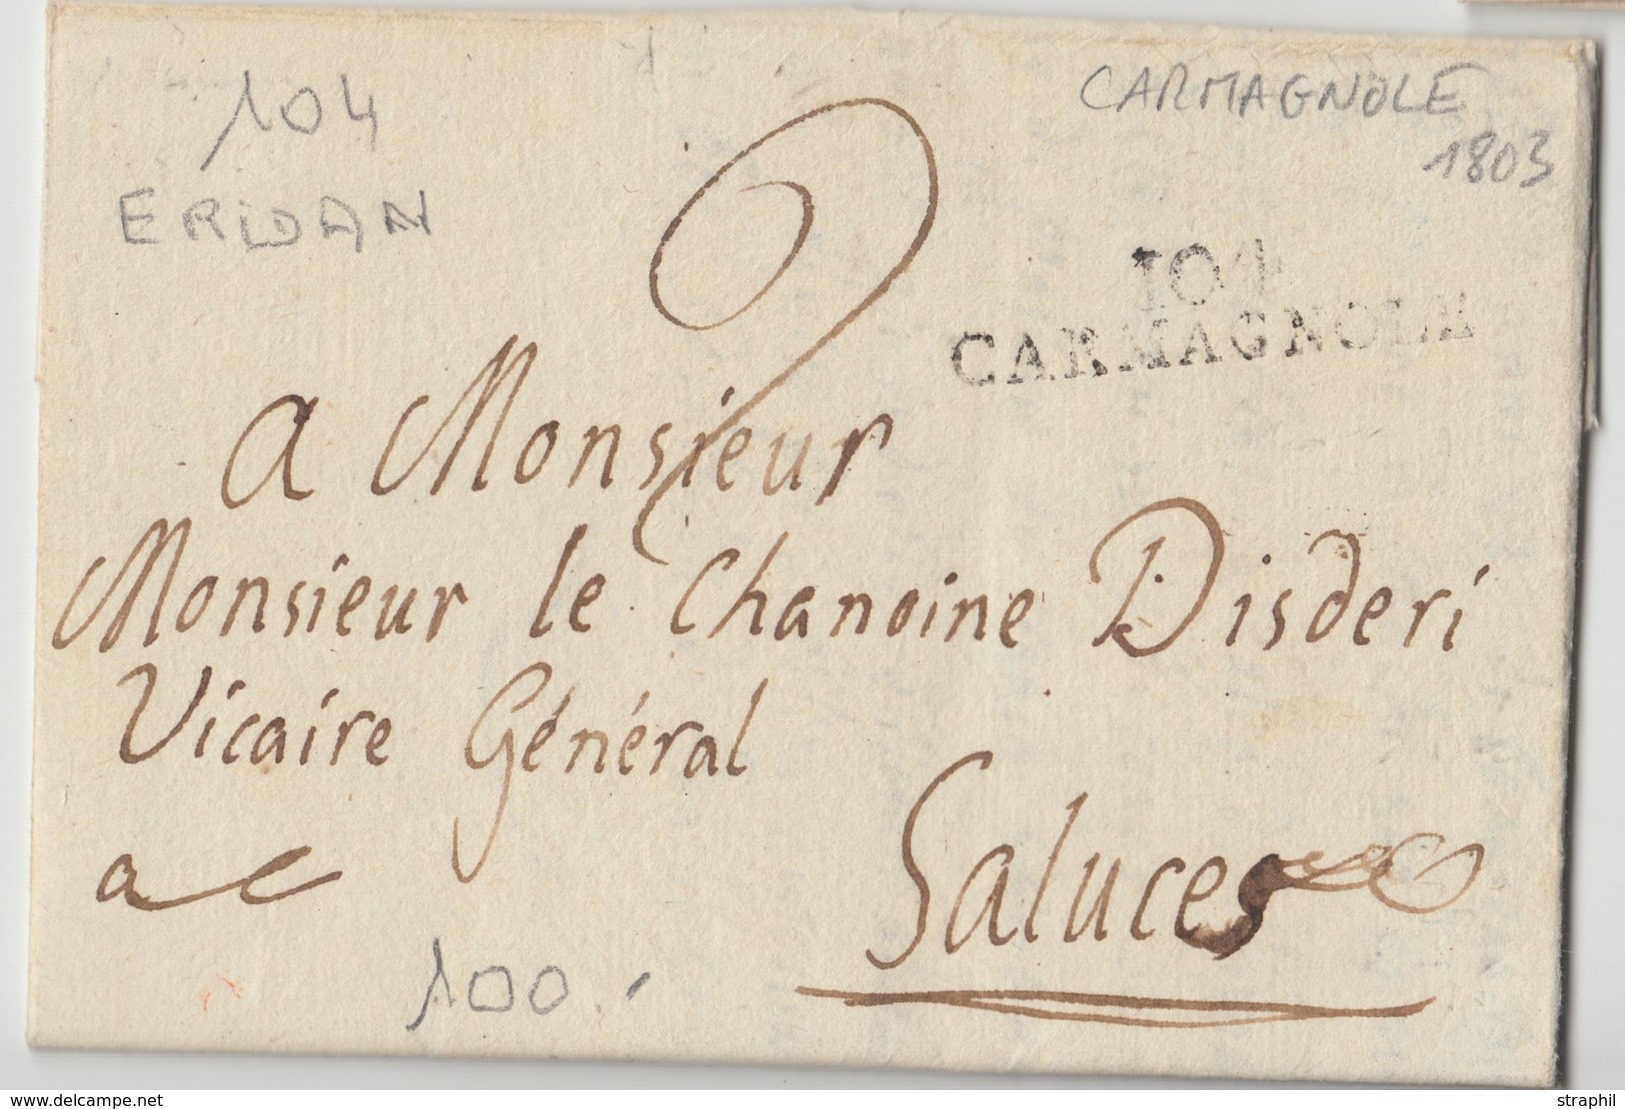 104
ERIDAN
CARMAGNOLE
1803
104
CARMAGNOLE
2
a Monsieur
Monsieur le Chanoine Disderi
Vicaire Général
a
Saluces
100.-
delcampe.net
straphil